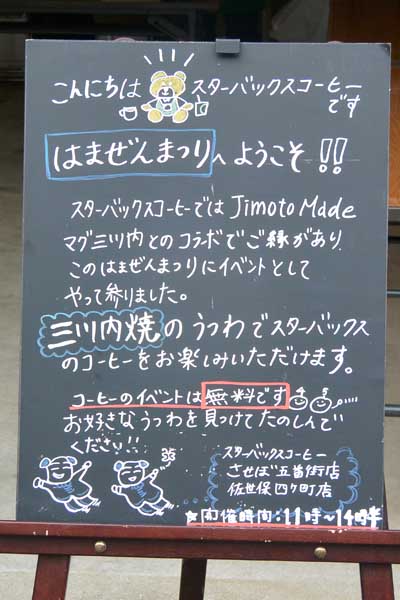 こんにちは スターバックスコーヒー
です
はまぜんまつりへようこそ!!
スターバックスコーヒーではJimoto Made
マグ三川内とのコラボでご縁があり
このはまぜんまつりにイベントとして
やって参りました。
三川内焼のうつわでスターバックス
のコーヒーをお楽しみいただけます。
コーヒーのイベントは無料です
お好きなうつわを見つけてたのしんで
ください!!
スターバックスコーヒー
させぼ五番街店
佐世保四ヶ町店
★開催時間:11時~14時半